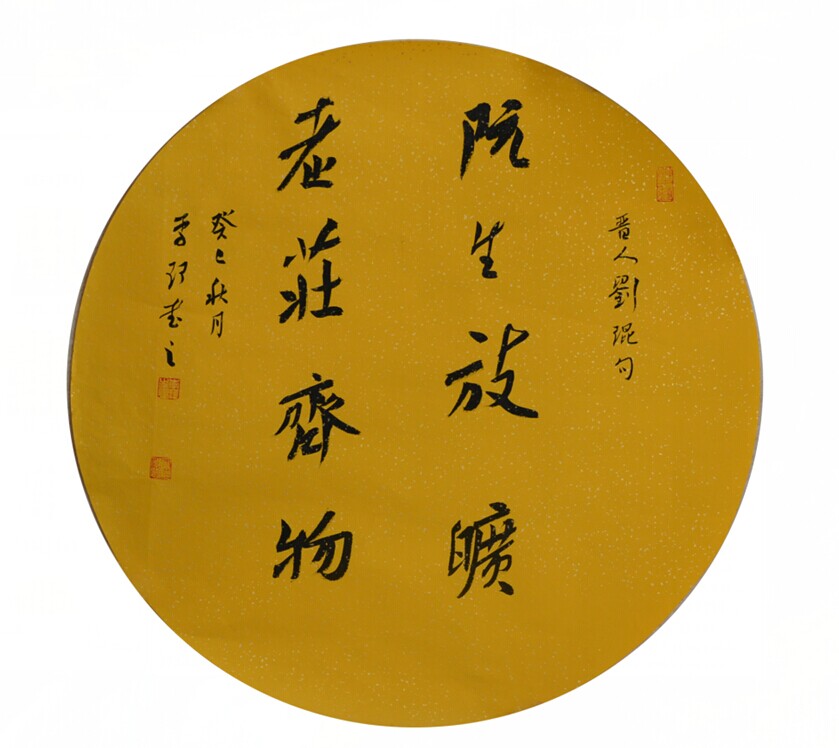 晋人劉琨句
阮生放曠
老莊齊物
癸巳秋月
李 書之